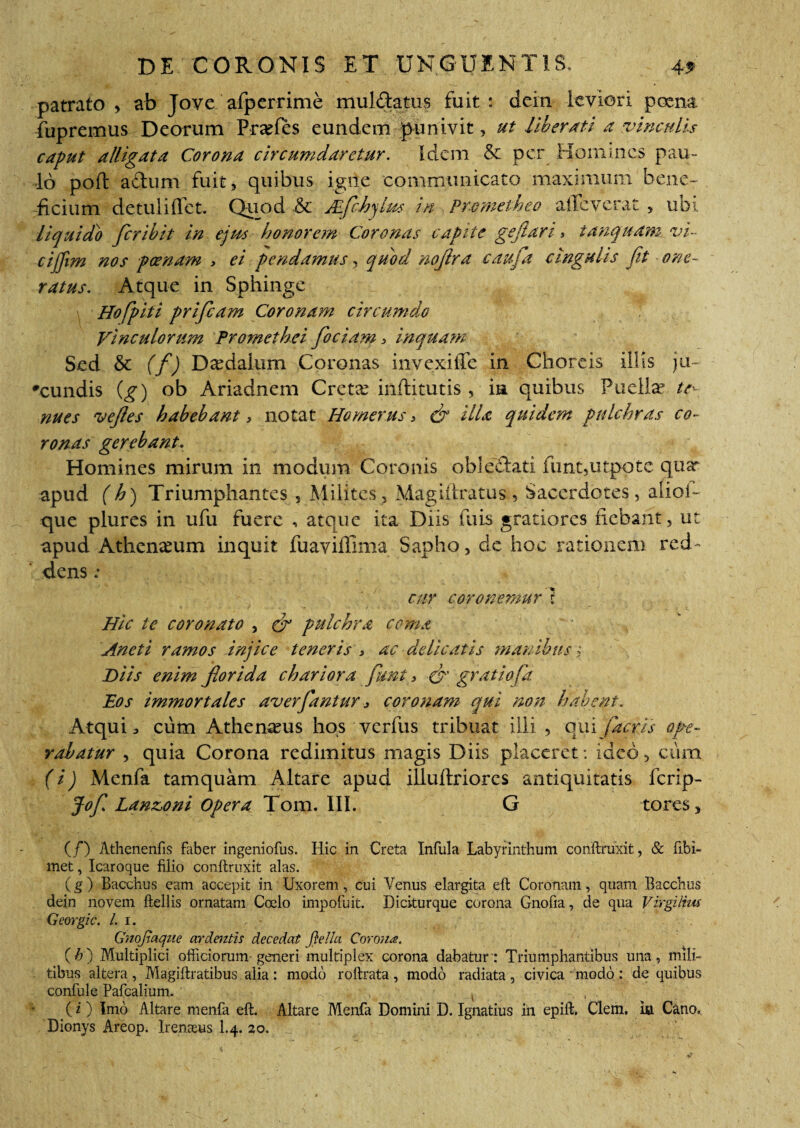 DE CORONIS ET UNGUENTIS. 49
patrato , ab Jove aſperrimè mulctatus fuit : dein leviori pœna
ſupremus Deorum Præſes eundem punivit, ut liberati a vinculis
caput alligata Corona circumdaretur. Idem & per Homines pau-
lò poſt actum fuit, quibus igne communicato maximum bene-
ficium detuliſſet. Quod & Æſchylus in Prometheo aſſeverat , ubi
liquidò ſcribit in ejus honorem Coronas capite geſtari, tanquam vi-
ciſſim nos pœnam , ei pendamus, quòd noſtra cauſa cingulis ſit one-
ratus. Atque in Sphinge
Hoſpiti priſcam Coronam circumdo
Vinculorum Promethei ſociam, inquam
Sed & (f) Dædalum Coronas invexiſſe in Choreis illis ju-
cundis (g) ob Ariadnem Cretæ inſtitutis , in quibus Puellæ te-
nues veſtes habebant, notat Homerus, & illæ quidem pulchras co-
ronas gerebant.
Homines mirum in modum Coronis oblectati ſunt,utpote quæ
apud (h) Triumphantes , Milites, Magiſtratus, Sacerdotes, alioſ-
que plures in uſu fuere , atque ita Diis ſuis gratiores fiebant, ut
apud Athenæum inquit ſuaviſſima Sapho, de hoc rationem red-
dens :
cur coronemur ?
Hic te coronato , & pulchræ comæ
Aneti ramos injice teneris , ac delicatis manibus ;
Diis enim florida chariora ſunt, & gratioſa
Eos immortales averſantur, coronam qui non habent.
Atqui, cùm Athenæus hos verſus tribuat illi , qui ſacris ope-
rabatur , quia Corona redimitus magis Diis placeret: ideò, cùm
(i) Menſa tamquàm Altare apud illuſtriores antiquitatis ſcrip-
Joſ. Lanzoni Opera Tom. III. G tores,
(f) Athenenſis faber ingenioſus. Hic in Creta Inſula Labyrinthum conſtruxit, & ſibi-
met, Icaroque filio conſtruxit alas.
(g) Bacchus eam accepit in Uxorem, cui Venus elargita eſt Coronam, quam Bacchus
dein novem ſtellis ornatam Cœlo impoſuit. Diciturque corona Gnoſia, de qua Virgilius
Georgic. l. 1.
Gnoſiaque ardentis decedat ſtella Coronæ.
(h) Multiplici officiorum generi multiplex corona dabatur: Triumphantibus una, mili-
tibus altera, Magiſtratibus alia: modò roſtrata, modò radiata, civica modò: de quibus
conſule Paſcalium.
(i) Imò Altare menſa eſt. Altare Menſa Domini D. Ignatius in epiſt. Clem. in Cano.
Dionys Areop. Irenæus l.4. 20.